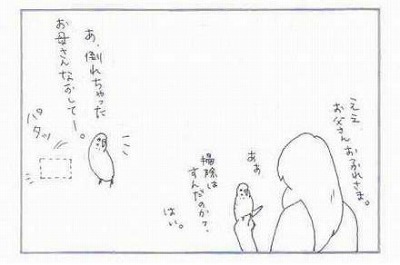 ええ、
お父さんおつかれさま。
ああ
掃除は
すんだのか？
はい。
あ、倒れちゃった
お母さんなおしてー。
パタッ